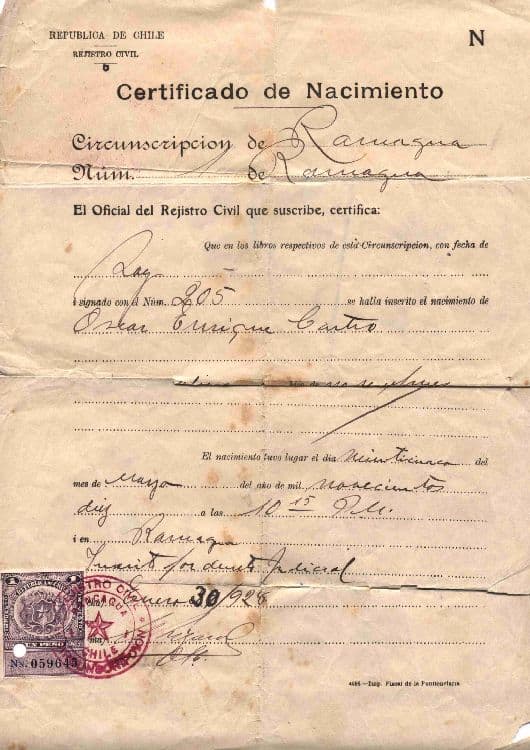 REPUBLICA DE CHILE
REJISTRO CIVIL
N
Certificado de Nacimiento
Circunscripcion de Rancagua
Núm. 1 de Rancagua
El Oficial del Rejistro Civil que suscribe, certifica:
Que en los libros respectivos de esta Circunscripcion, con fecha de
i signado con el Núm. 205 se halla inscrito el nacimiento de
Oscar Enrique Castro
El nacimiento tuvo lugar el dia Veinticinco del
mes de Mayo del año de mil novecientos
diez a las 10 15 P.M.
i en Rancagua
Inscrito por decreto Judicial
Enero 30 1928
UN PESO
Ns. 059645
REJISTRO CIVIL
RANCAGUA
CHILE
CIRCUNSCRIPCION
4495—Imp. Fiscal de la Penitenciaria